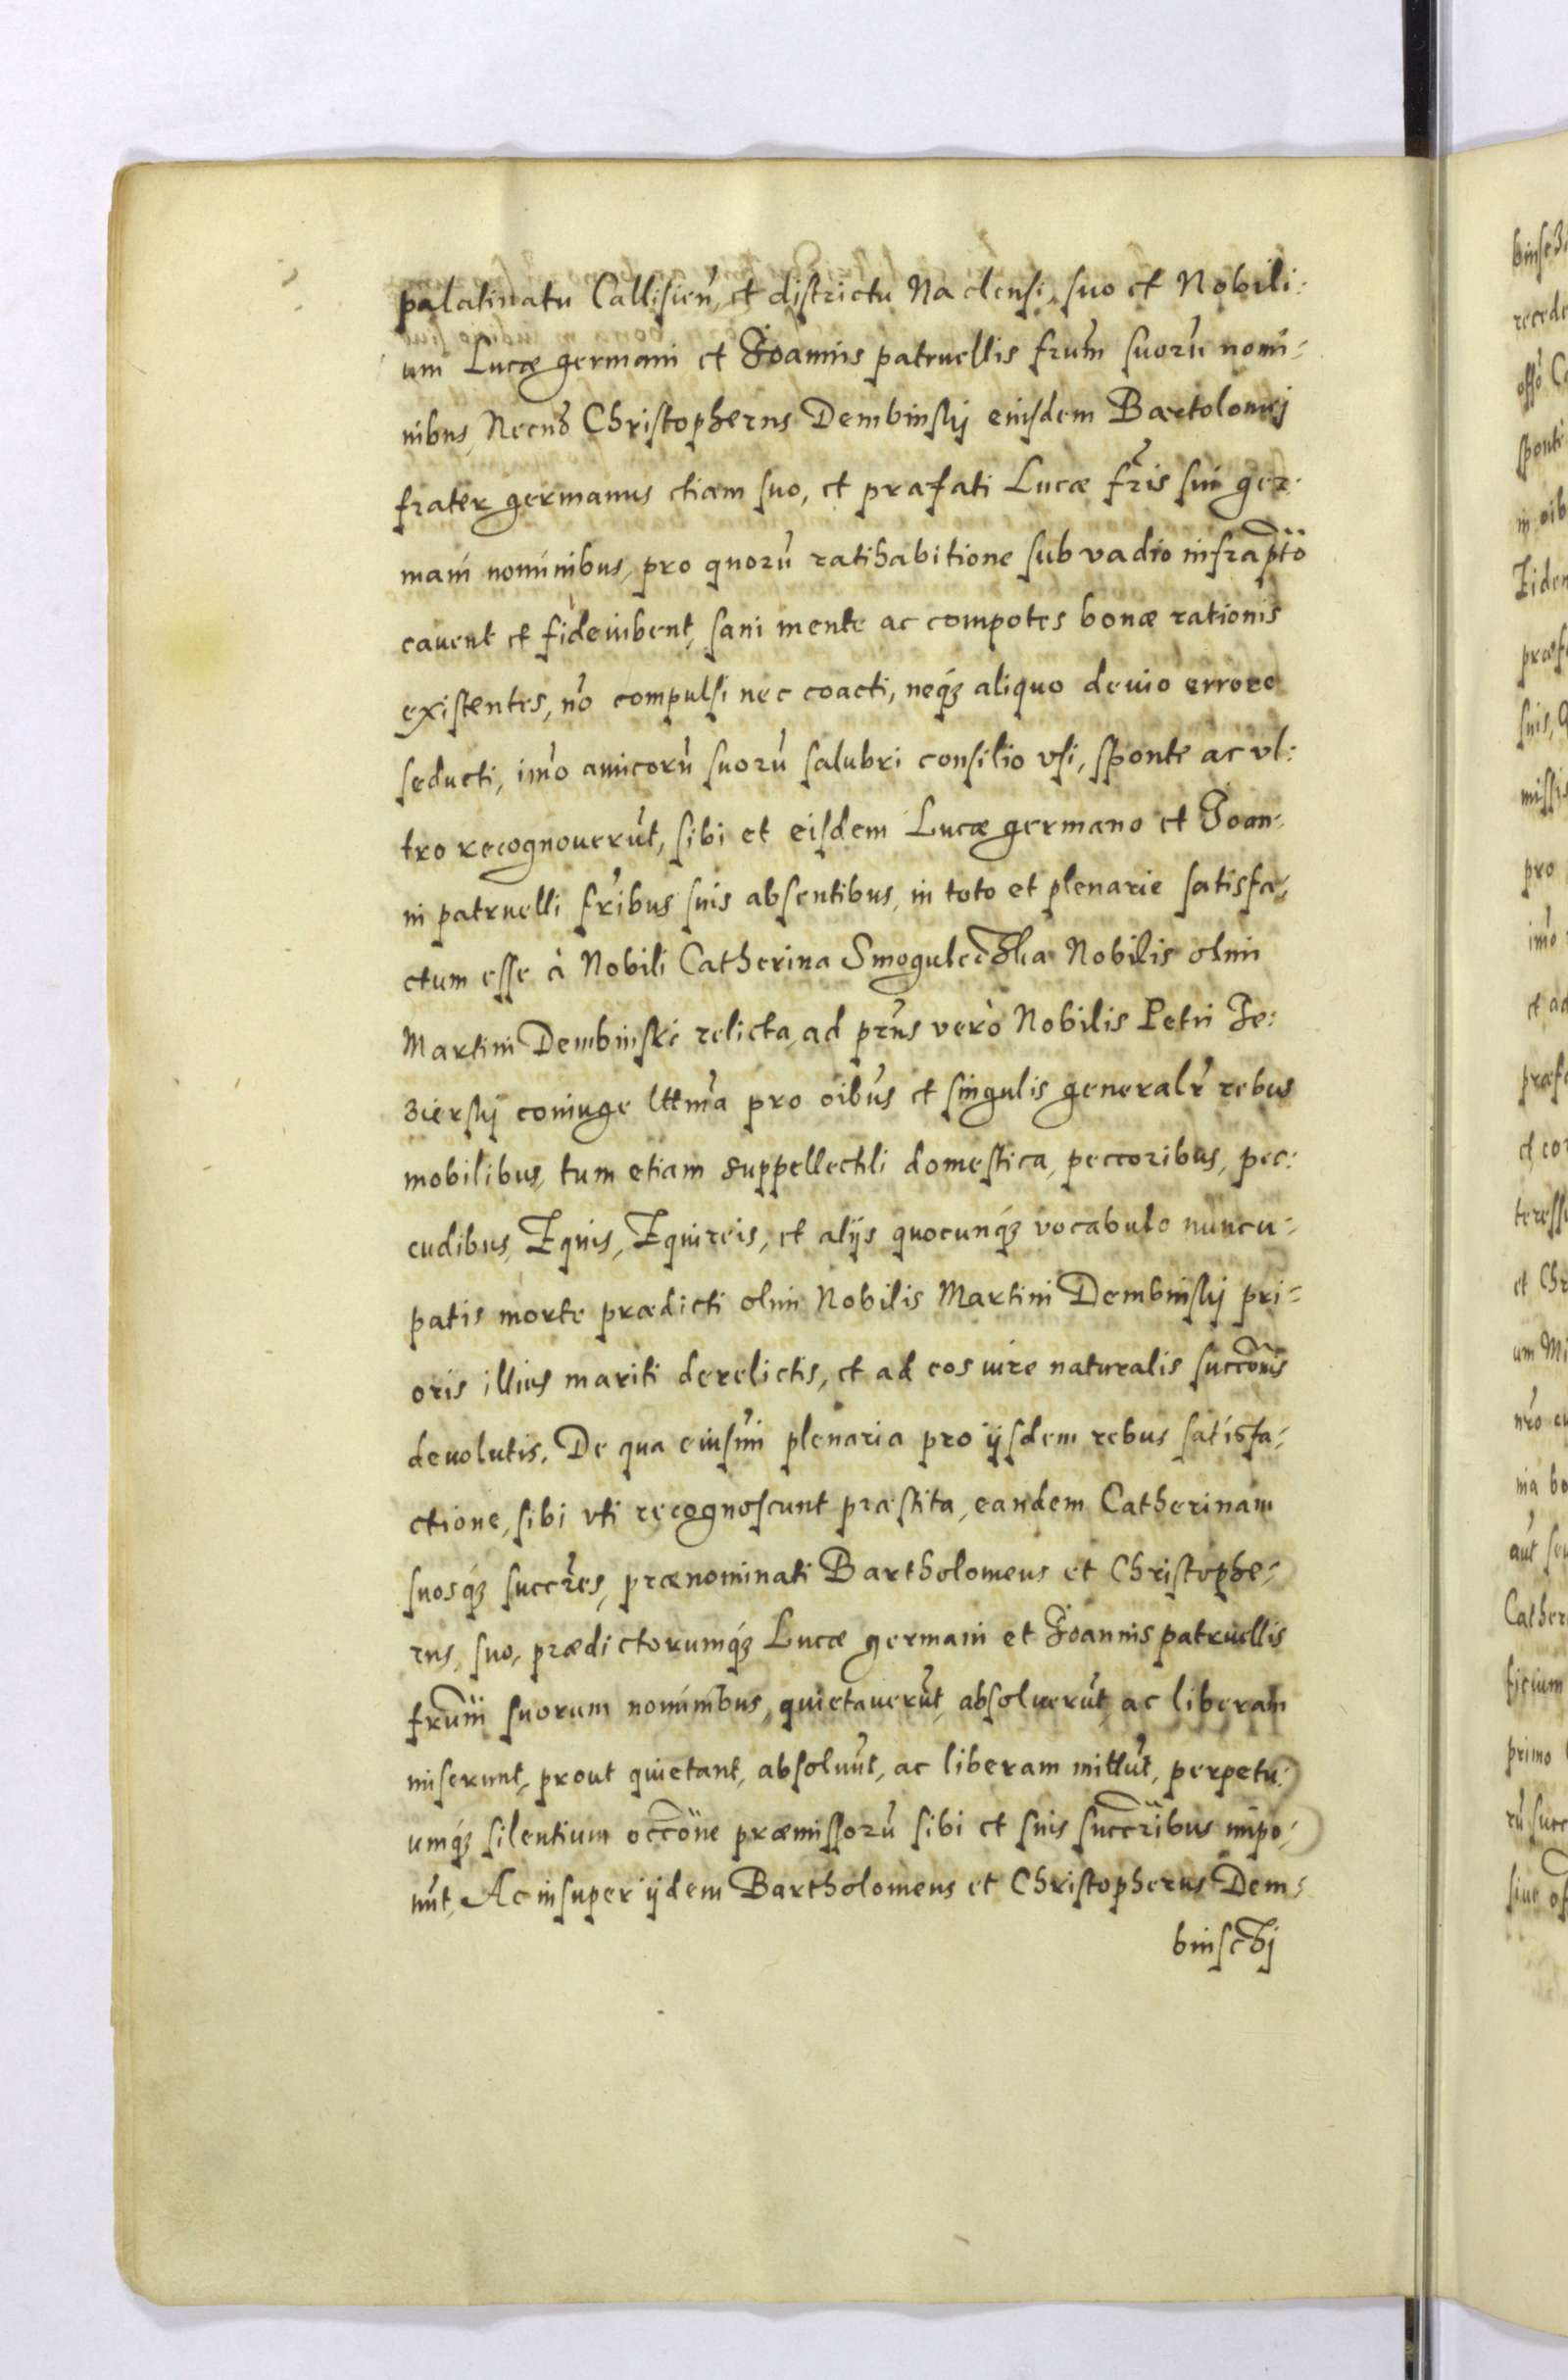 palatinatu Callisieñ, et districtu Naclensi, suo et Nobili:
um Lucæ germani et Joannis patruellis frum̃ suorũ nomi-
nibus, Necnõ Christopherus Dembinskij eiusdem Bartolomej
frater germanus etiam suo, et præfati Lucæ fr̃is sui ger-
mani nominibus, pro quorũ ratihabitione sub vadio infrap̃to
cauent et fideiubent, sani mente ac compotes bonæ rationis
existentes, nõ compulsi nec coacti, neq́ꝫ aliquo deuio errore
seducti, imõ amicorũ suorũ salubri consilio vsi, sponte ac vl:
tro recognouerũt, sibi et eisdem Lucæ germano et Joan-
ni patruelli fr̃ibus suis absentibus, in toto et plenarie satisfa-
ctum esse à Nobili Catherina Smogulecka Nobilis olim
Martini Dembinski relicta, ad pr̃ns verò Nobilis Petri Je:
zierskij coniuge lttm̃a pro oib̃us et singulis generalr̃ rebus
mobilibus, tum etiam suppellectili domestica, peccoribus, pec:
cudibus, Equis, Equireis, et alijs quocunq́ꝫ vocabulo nuncu-
patis morte prædicti olim Nobilis Martini Dembinskij pri-
oris illius mariti derelictis, et ad eos iure naturalis succõnis
deuolutis. De qua eiusm̃i plenaria pro ijsdem rebus satisfa-
ctione, sibi vti recognoscunt præstita, eandem Catherinam
suosq́ꝫ succr̃es, prænominati Bartholomeus et Christophe-
rus, suo, prædictorumq́ꝫ Lucæ germani et Joannis patruellis
frum̃ suorum nominibus, quietauerũt, absoluerũt, ac liberam
miserunt, prout quietant, absoluũt, ac liberam mittũt, perpetu:
umq́ꝫ silentium occõne præmissorũ sibi et suis succr̃ibus impo-
nũt, Ac insuper ijdem Bartholomeus et Christopherus Dem-
binsckj